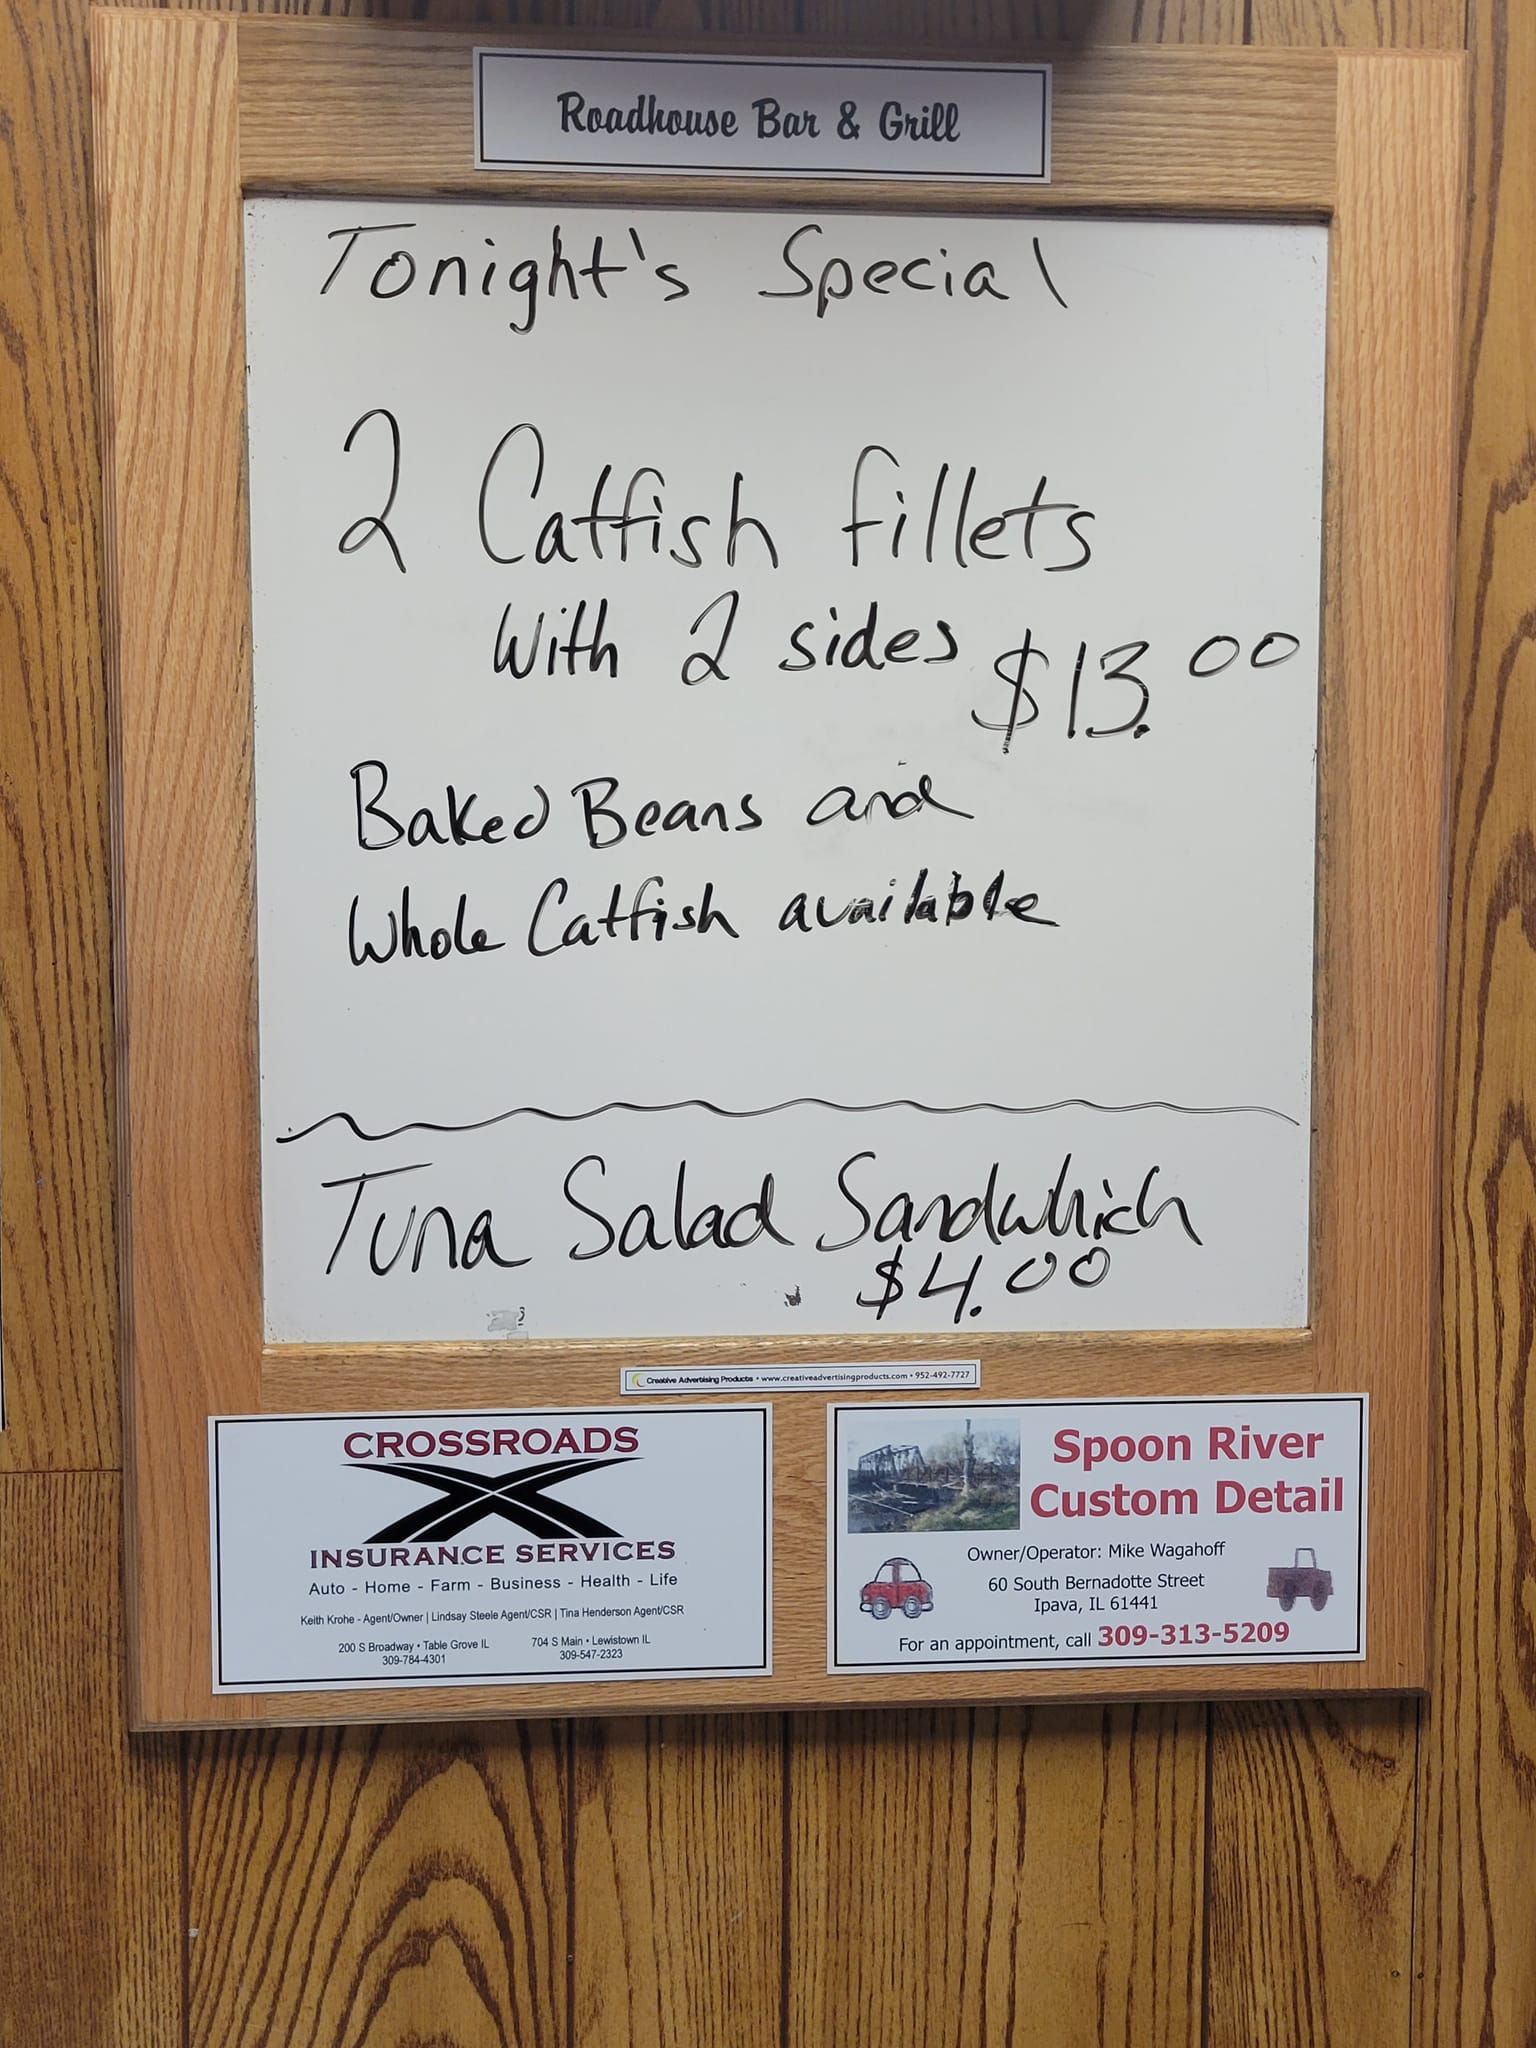 Roadhouse Bar & Grill
Tonight's Special
2 Catfish fillets
With 2 sides $13.00
Baked Beans and
Whole Catfish available
Tuna Salad Sandwhich
$4.00
Creative Advertising Products • www.creativeadvertisingproducts.com • 952-492-7727
CROSSROADS
INSURANCE SERVICES
Auto - Home - Farm - Business - Health - Life
Keith Krohe - Agent/Owner | Lindsay Steele Agent/CSR | Tina Henderson Agent/CSR
200 S Broadway • Table Grove IL
309-784-4301
704 S Main • Lewistown IL
309-547-2323
Spoon River
Custom Detail
Owner/Operator: Mike Wagahoff
60 South Bernadotte Street
Ipava, IL 61441
For an appointment, call 309-313-5209